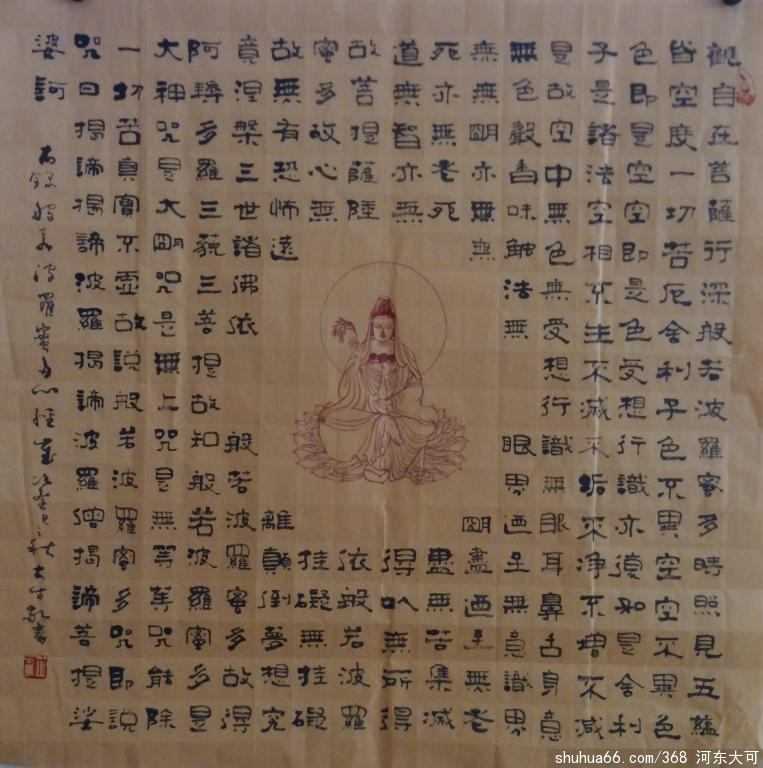 觀自在菩薩行深般若波羅蜜多時照見五蘊
皆空度一切苦厄舍利子色不異空空不異色
色即是空空即是色受想行識亦復如是舍利
子是諸法空相不生不滅不垢不净不增不减
是故空中無色無受想行識無眼耳鼻舌身意
無色聲香味觸法無眼界迺至無意識界
無無明亦無無明盡迺至無老
死亦無老死盡無苦集滅
道無智亦無得以無所得
故菩提薩陲依般若波羅
蜜多故心無挂礙無挂礙
故無有恐怖遠離顛倒夢想究
竟涅槃三世諸佛依般若波羅蜜多故得
阿耨多羅三藐三菩提故知般若波羅蜜多是
大神咒是大明咒是無上咒是無等等咒能除
一切苦真實不虛故說般若波羅蜜多咒即說
咒曰揭諦揭諦波羅揭諦波羅僧揭諦菩提娑
婆訶
右錄般若波羅蜜多心經歲次癸巳之秋大可敬書
shuhua66.com/368 河东大可